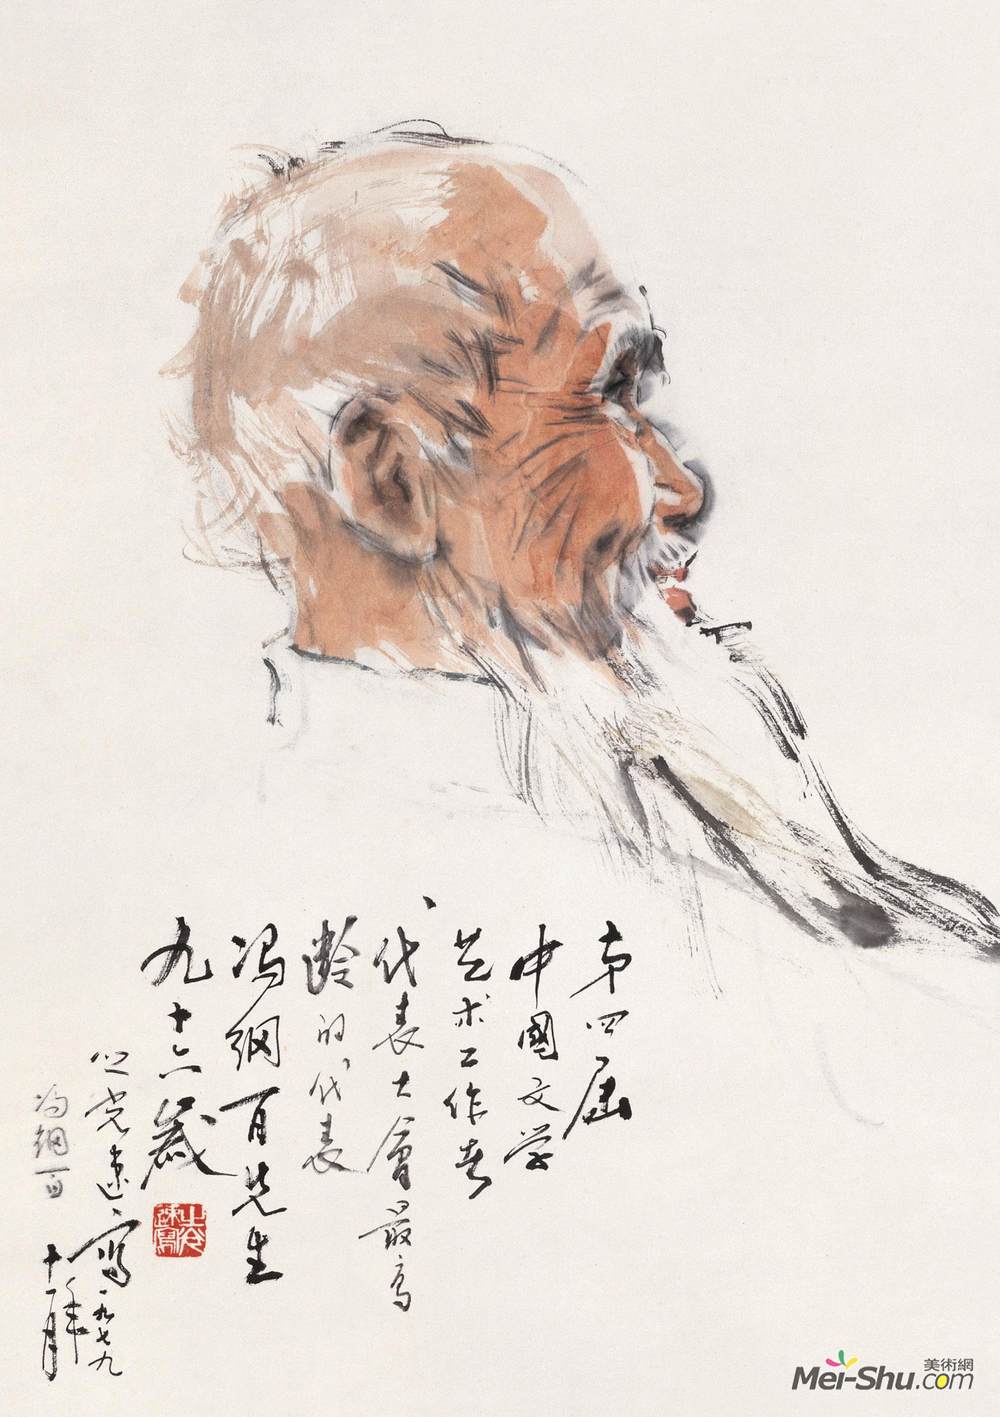 第四届
中國文学
艺术工作者
代表大會最高
龄的代表
冯纲百先生
九十六歲
光速写一九七九
年
十一月
冯钢百
速寫
美術網
Mei-Shu.com